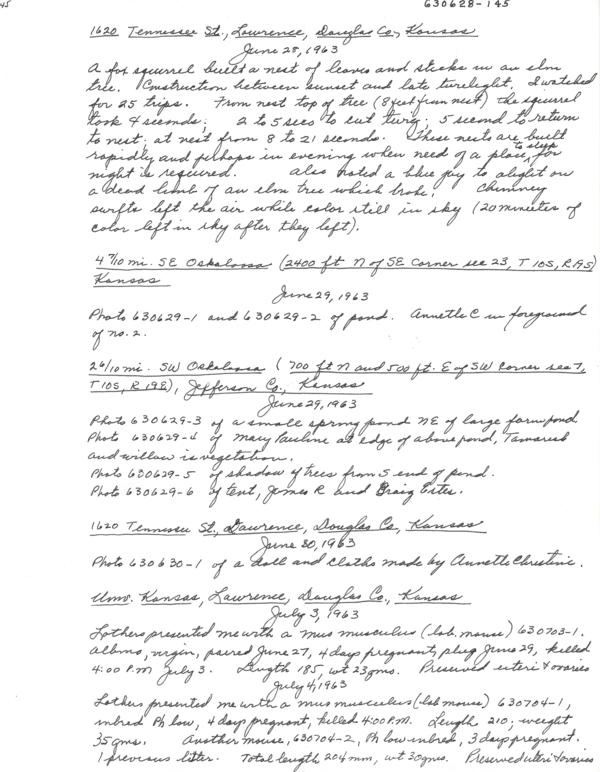 45
630628-145
1620 Tennessee St., Lawrence, Douglas Co., Kansas
June 28, 1963
A fox squirrel built a nest of leaves and sticks in an elm
tree. Construction between sunset and late twilight. I watched
for 25 trips. From nest top of tree (8 feet from nest) the squirrel
took 4 seconds; 2 to 5 secs to cut twig; 5 second to return
to nest; at nest from 8 to 21 seconds. These nests are built
rapidly and perhaps in evening when need of a place to sleep for
night is required. Also noted a blue jay to alight on
a dead limb of an elm tree which broke. Chimney
swifts left the air while color still in sky (20 minutes of
color left in sky after they left).
4 7/10 mi. SE Oskaloosa (2400 ft N of SE Corner sec 23, T 10S, R19S)
Kansas
June 29, 1963
Photo 630629-1 and 630629-2 of pond. Annette C in foreground
of no. 2.
2 6/10 mi. SW Oskaloosa (700 ft N and 500 ft. E of SW Corner sec 7,
T10S, R19E), Jefferson Co., Kansas
June 29, 1963
Photo 630629-3 of a small spring pond NE of large farm pond
Photo 630629-4 of Mary Pauline at edge of above pond, Tamarisk
and willow is vegetation.
Photo 630629-5 of shadow of trees from S end of pond.
Photo 630629-6 of tent, James R and Craig Estes.
1620 Tennessee St., Lawrence, Douglas Co., Kansas
June 30, 1963
Photo 630630-1 of a doll and cloths made by Annette Christine.
Univ. Kansas, Lawrence, Douglas Co., Kansas
July 3, 1963
Lothers presented me with a mus musculus (lab. mouse) 630703-1.
Albino, virgin, paired June 27, 4 days pregnant, plug June 29, killed
4:00 P.M July 3. Length 185, wt 23 gms. Preserved uteri & ovaries
July 4, 1963
Lothers presented me with a mus musculus (lab mouse) 630704-1,
inbred Ph low, 4 days pregnant, killed 4:00 P.M. Length 210; weight
35 gms. Another mouse, 630704-2, Ph low inbred, 3 days pregnant.
1 previous litter. Total length 204 mm, wt 30 gms. Preserved uteri & ovaries